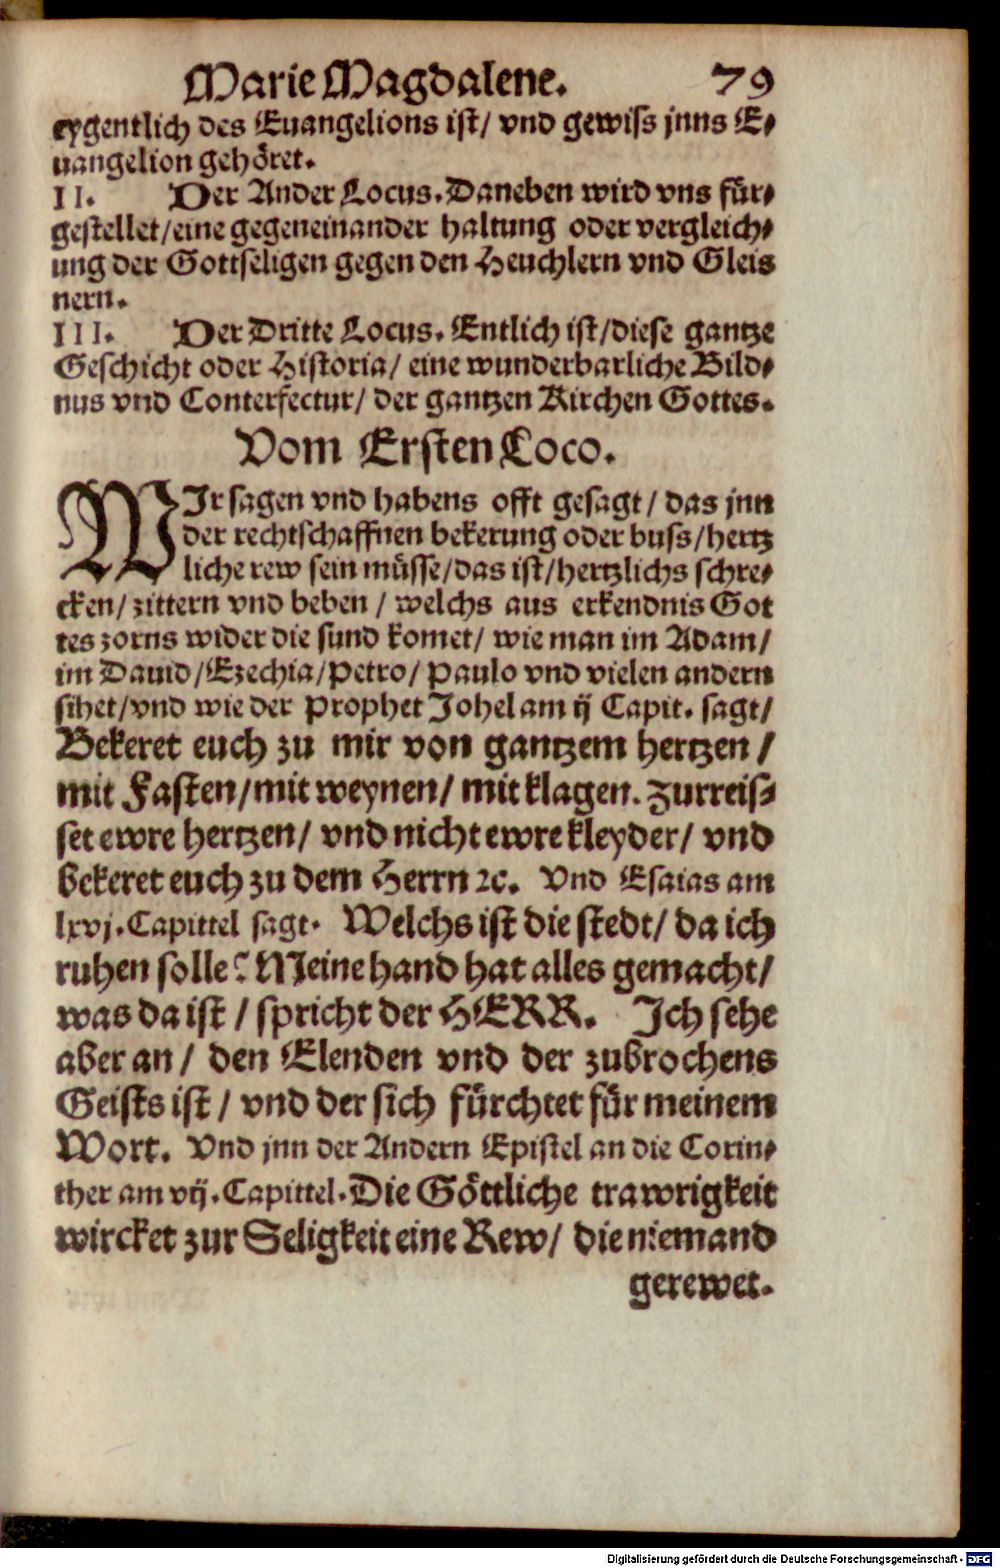 Marie Magdalene. 79
eygentlich des Euangelions ist/ vnd gewiss jnns E⸗
uangelion gehöret.
II. Der Ander Locus. Daneben wird vns für⸗
gestellet/eine gegeneinander haltung oder vergleich⸗
ung der Gottseligen gegen den Heuchlern vnd Gleis
nern.
III. Der Dritte Locus. Entlich ist/diese gantze
Geschicht oder Historia/ eine wunderbarliche Bild⸗
nus vnd Conterfectur/ der gantzen Kirchen Gottes.
Vom Ersten Loco.
WIr sagen vnd habens offt gesagt/ das jnn
der rechtschaffnen bekerung oder buss/hertz
liche rew sein müsse/das ist/hertzlichs schre⸗
cken/ zittern vnd beben/ welchs aus erkendnis Got
tes zorns wider die sund komet/ wie man im Adam/
im Dauid/Ezechia/Petro/ Paulo vnd vielen andern
sihet/vnd wie der Prophet Johel am ij Capit. sagt/
Bekeret euch zu mir von gantzem hertzen/
mit Fasten/mit weynen/ mit klagen. Zurreis⸗
set ewre hertzen/ vnd nicht ewre kleyder/ vnd
bekeret euch zu dem Herrn ꝛc. Vnd Esaias am
lxvj. Capittel sagt. Welchs ist die stedt/ da ich
ruhen solle? Meine hand hat alles gemacht/
was da ist/ spricht der HERR. Ich sehe
aber an/ den Elenden vnd der zubrochens
Geists ist/ vnd der sich fürchtet für meinem
Wort. Vnd jnn der Andern Epistel an die Corin⸗
ther am vij. Capittel. Die Göttliche trawrigkeit
wircket zur Seligkeit eine Rew/ die niemand
gerewet.
Digitalisierung gefördert durch die Deutsche Forschungsgemeinschaft - DFG